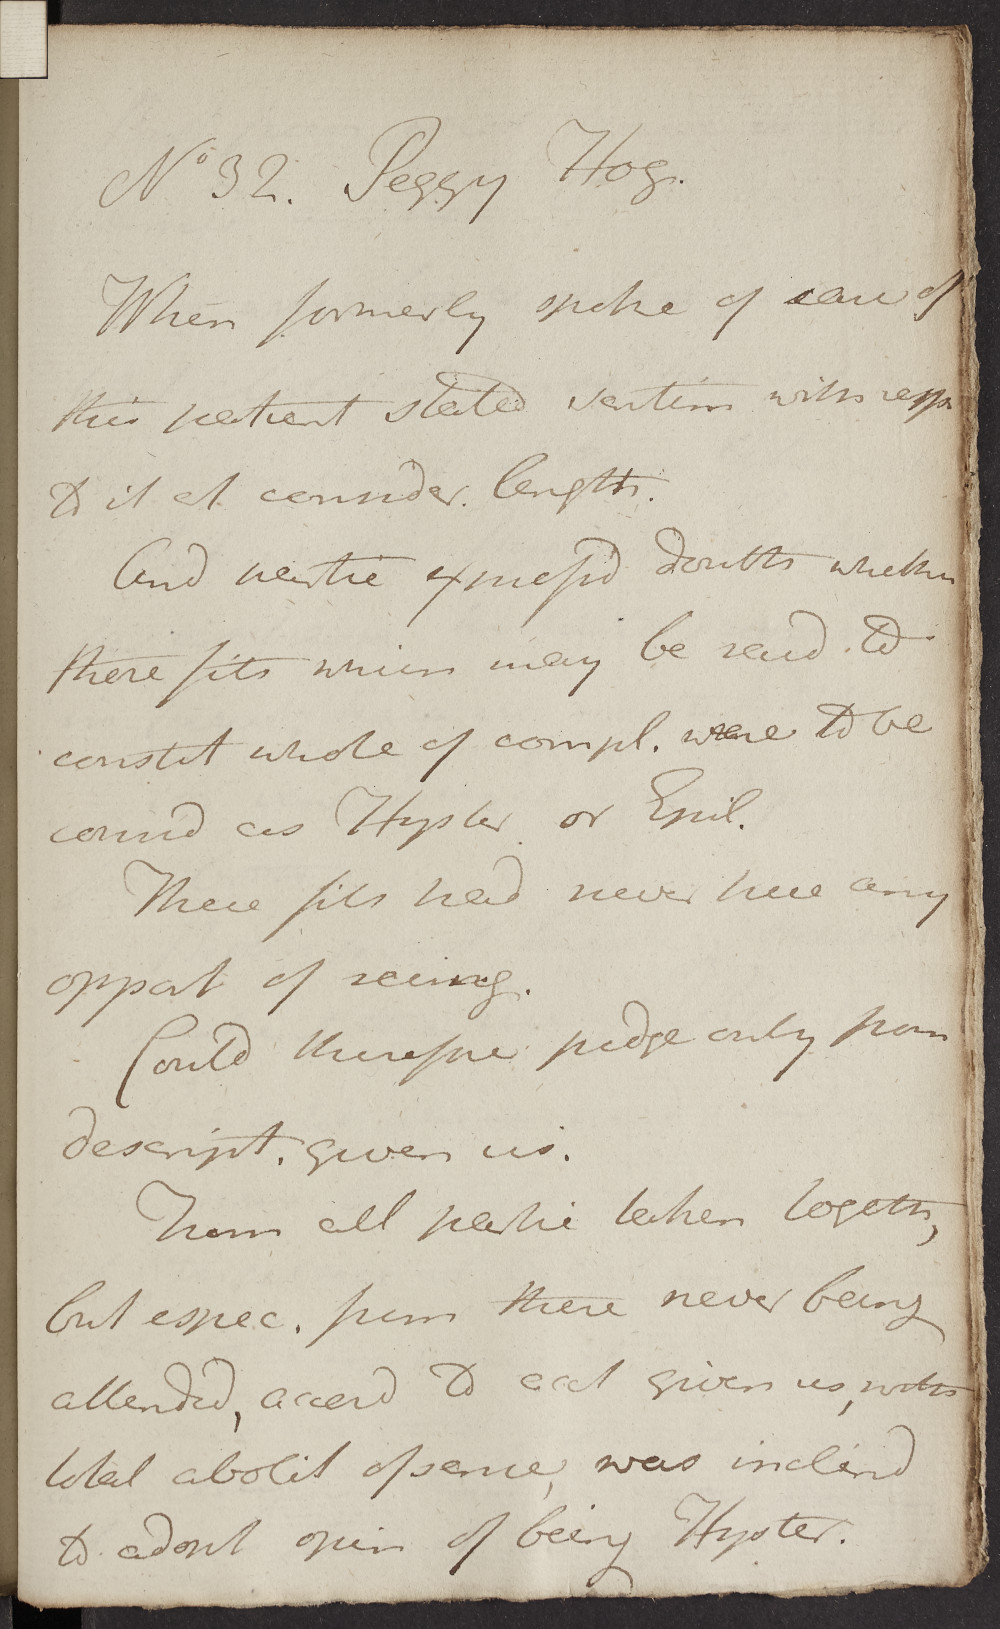 No 32. Peggy Hog.
When formerly spoke of case of
this patient stated sentim with resp
to it at consider. length.
And partic express'd doubts whether
these fits which may be said to
constit whole of compl. were to be
consid as Hyster or Epil.
These fits had never here any
opport of seeing.
Could therefore judge only from
descript. given us.
From all partic taken togeth,
but espec. from there never being
attended, accord to acct given us, with
total abolit of sense, was inclin'd
to adopt opin of being Hyster.